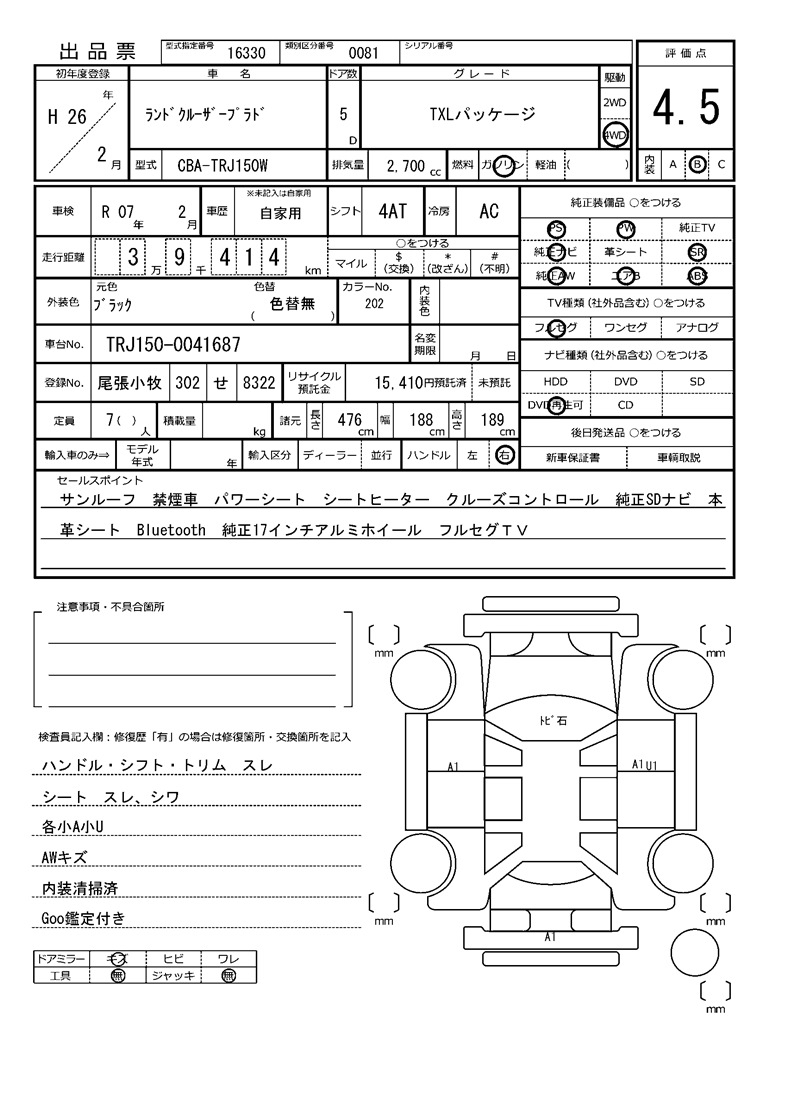 出品票 型式指定番号 16330 類別区分番号 0081 シリアル番号
評価点
初年度登録 車名 ドア数 グレード 駆動
H 26 年 2 月 ﾗﾝﾄﾞｸﾙｰｻﾞｰﾌﾟﾗﾄﾞ 5 D TXLパッケージ 2WD 4WD
4.5
型式 CBA-TRJ150W 排気量 2,700 cc 燃料 ガソリン 軽油 ( )
内装 A B C
車検 R 07 年 2 月 車歴 ※未記入は自家用 自家用 シフト 4AT 冷房 AC
走行距離 3 万 9 千 4 1 4 km
○をつける
マイル $(交換) *(改ざん) #(不明)
外装色 元色 ﾌﾞﾗｯｸ 色替 色替無 ( ) カラーNo. 202 内装色
車台No. TRJ150-0041687 名変期限 月 日
登録No. 尾張小牧 302 せ 8322 リサイクル預託金 15,410円預託済 未預託
定員 7 ( ) 人 積載量 kg 諸元 長さ 476 cm 幅 188 cm 高さ 189 cm
輸入車のみ⇒ モデル年式 年 輸入区分 ディーラー 並行 ハンドル 左 右
純正装備品 ○をつける
PS PW 純正TV
純正ナビ 革シート SR
純正AW エアB ABS
TV種類(社外品含む) ○をつける
フルセグ ワンセグ アナログ
ナビ種類(社外品含む) ○をつける
HDD DVD SD
DVD再生可 CD
後日発送品 ○をつける
新車保証書 車輌取説
セールスポイント
サンルーフ 禁煙車 パワーシート シートヒーター クルーズコントロール 純正SDナビ 本
革シート Bluetooth 純正17インチアルミホイール フルセグＴＶ
注意事項・不具合箇所
検査員記入欄：修復歴「有」の場合は修復箇所・交換箇所を記入
ハンドル・シフト・トリム スレ
シート スレ、シワ
各小A小U
AWキズ
内装清掃済
Goo鑑定付き
ドアミラー キズ ヒビ ワレ
工具 無 ジャッキ 無
mm mm
ﾄﾋﾞ石
A1 A1 U1
mm mm
A1
mm